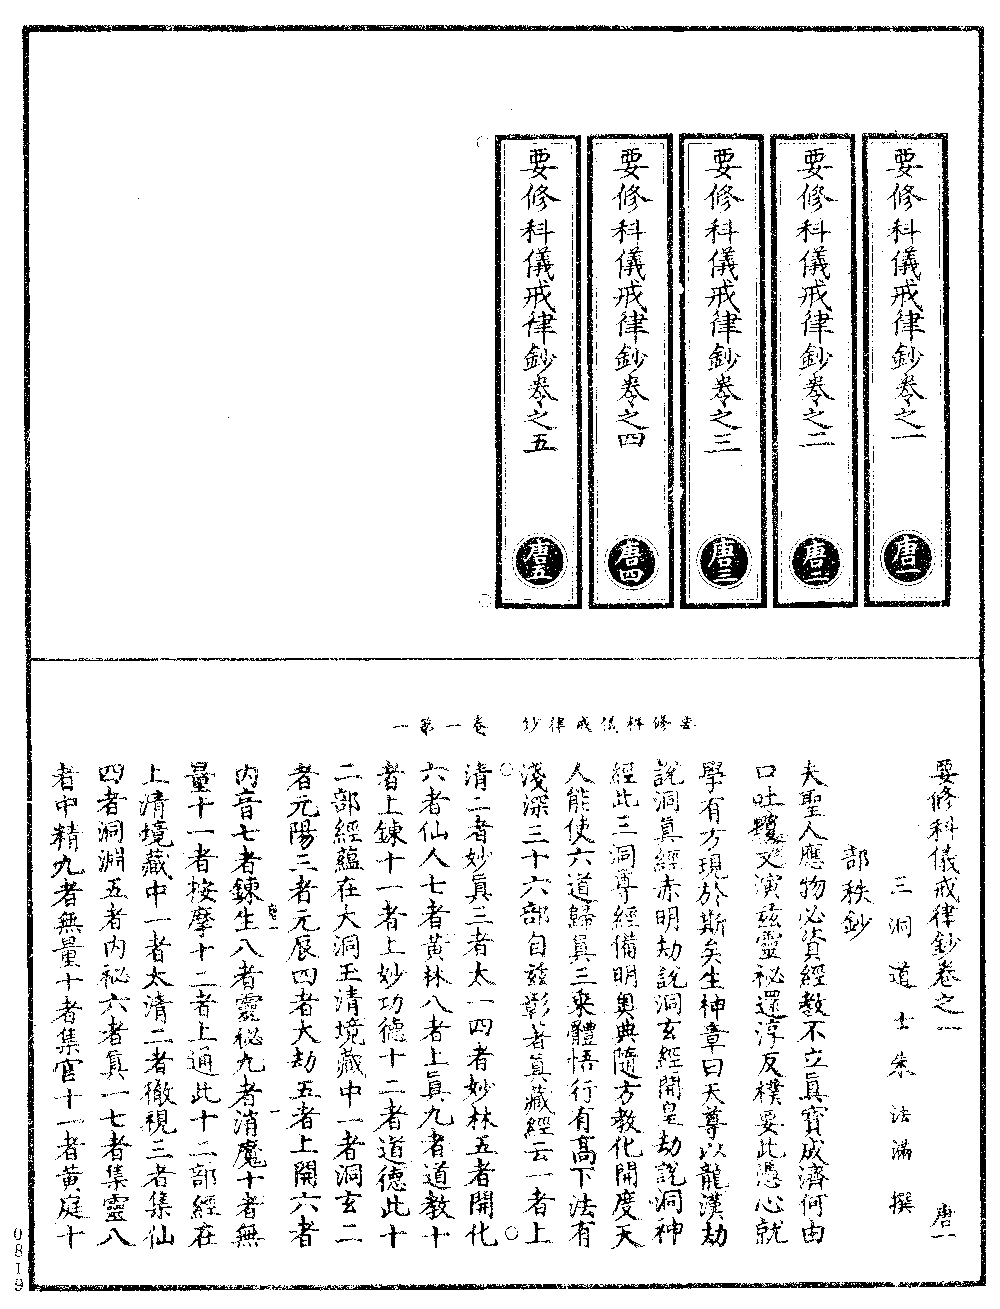 要修科儀戒律鈔卷之一
唐一
要修科儀戒律鈔卷之二
唐二
要修科儀戒律鈔卷之三
唐三
要修科儀戒律鈔卷之四
唐四
要修科儀戒律鈔卷之五
唐五
要修科儀戒律鈔 卷一第一
要修科儀戒律鈔卷之一 唐一
三洞道士朱法滿撰
部秩鈔
夫聖人應物必資經教不立真寶成濟何由
口吐瓊文演茲靈祕還淳反樸要此憑心就
學有方現於斯矣生神章曰天尊以龍漢劫
說洞真經赤明劫說洞玄經開皇劫說洞神
經此三洞尊經備明奧典隨方教化開度天
人能使六道歸真三乘體悟行有高下法有
淺深三十六部自茲彰著真藏經云一者上
清二者妙真三者太一四者妙林五者開化
六者仙人七者黃林八者上真九者道教十
者上鍊十一者上妙功德十二者道德此十
二部經蘊在大洞玉清境藏中一者洞玄二
者元陽三者元辰四者大劫五者上開六者
唐一 一
內音七者鍊生八者靈祕九者消魔十者無
量十一者按摩十二者上通此十二部經在
上清境藏中一者太清二者徹視三者集仙
四者洞淵五者內祕六者真一七者集靈八
者中精九者無量十者集宮十一者黃庭十
0819